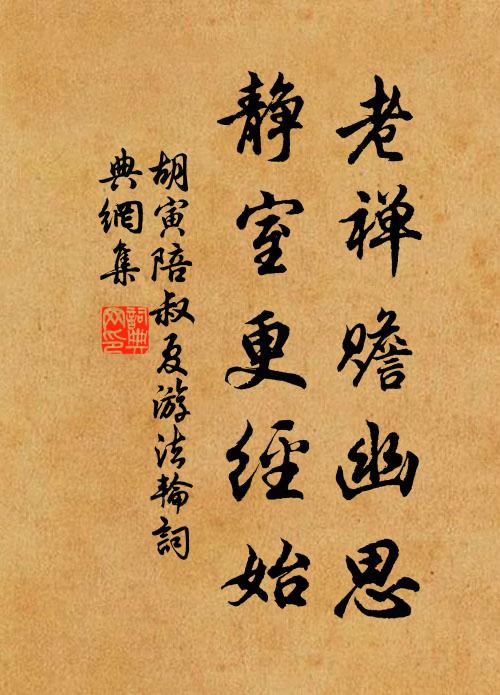 老禅赡幽思
静室更经始
胡寅陪叔夏游法輪詞
典網集
詞典网印